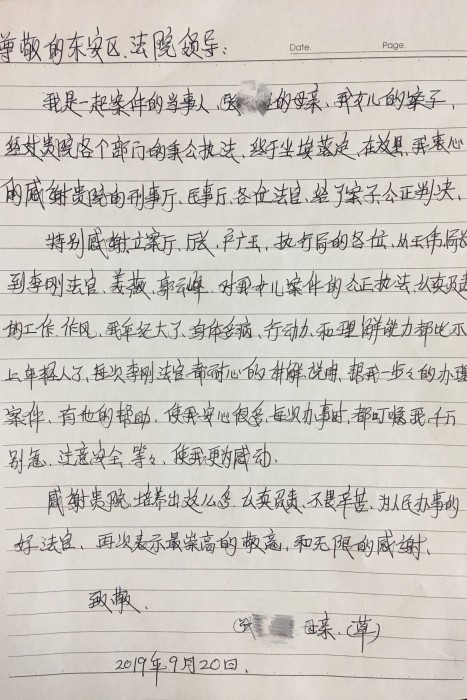 尊敬的东安区、法院领导：
Date. Page.
我是一起案件的当事人、的母亲、我女儿的案子
经过贵院各个部门的秉公执法、终于尘埃落定、在效果、我衷心
的感谢贵院的刑事厅、民事厅、各位法官、给了案子公正判决、
特别感谢立案厅、厅长、卢广玉、执行局的各位、从王伟局长
到李刚法官、姜薇、郭云峰、对我女儿案件的公正执法、认真负责
的工作、作风、我年纪大了、身体多病、行动力、和理解能力都比不
上年轻人了、每次李刚法官都耐心的讲解说明、帮我一步々的办理
案件、有他的帮助、使我安心很多、每次办事时、都叮嘱我千万
别急、注意安全、等々、使我更为感动.
感谢贵院、培养出这么多、认真负责、不畏辛苦、为人民办事的
好法官、再次表示最崇高的敬意、和无限的感谢、
致敬、
母亲、(草)
2019年9月20日.